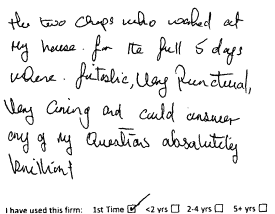 the two chaps who worked at
my house. for the full 5 days
where. fntastic, Very Punctual,
Very Caring and could answer
any of my Questions absolutely
brilliant
I have used this firm: 1st Time ☑ <2 yrs ☐ 2-4 yrs ☐ 5+ yrs ☐